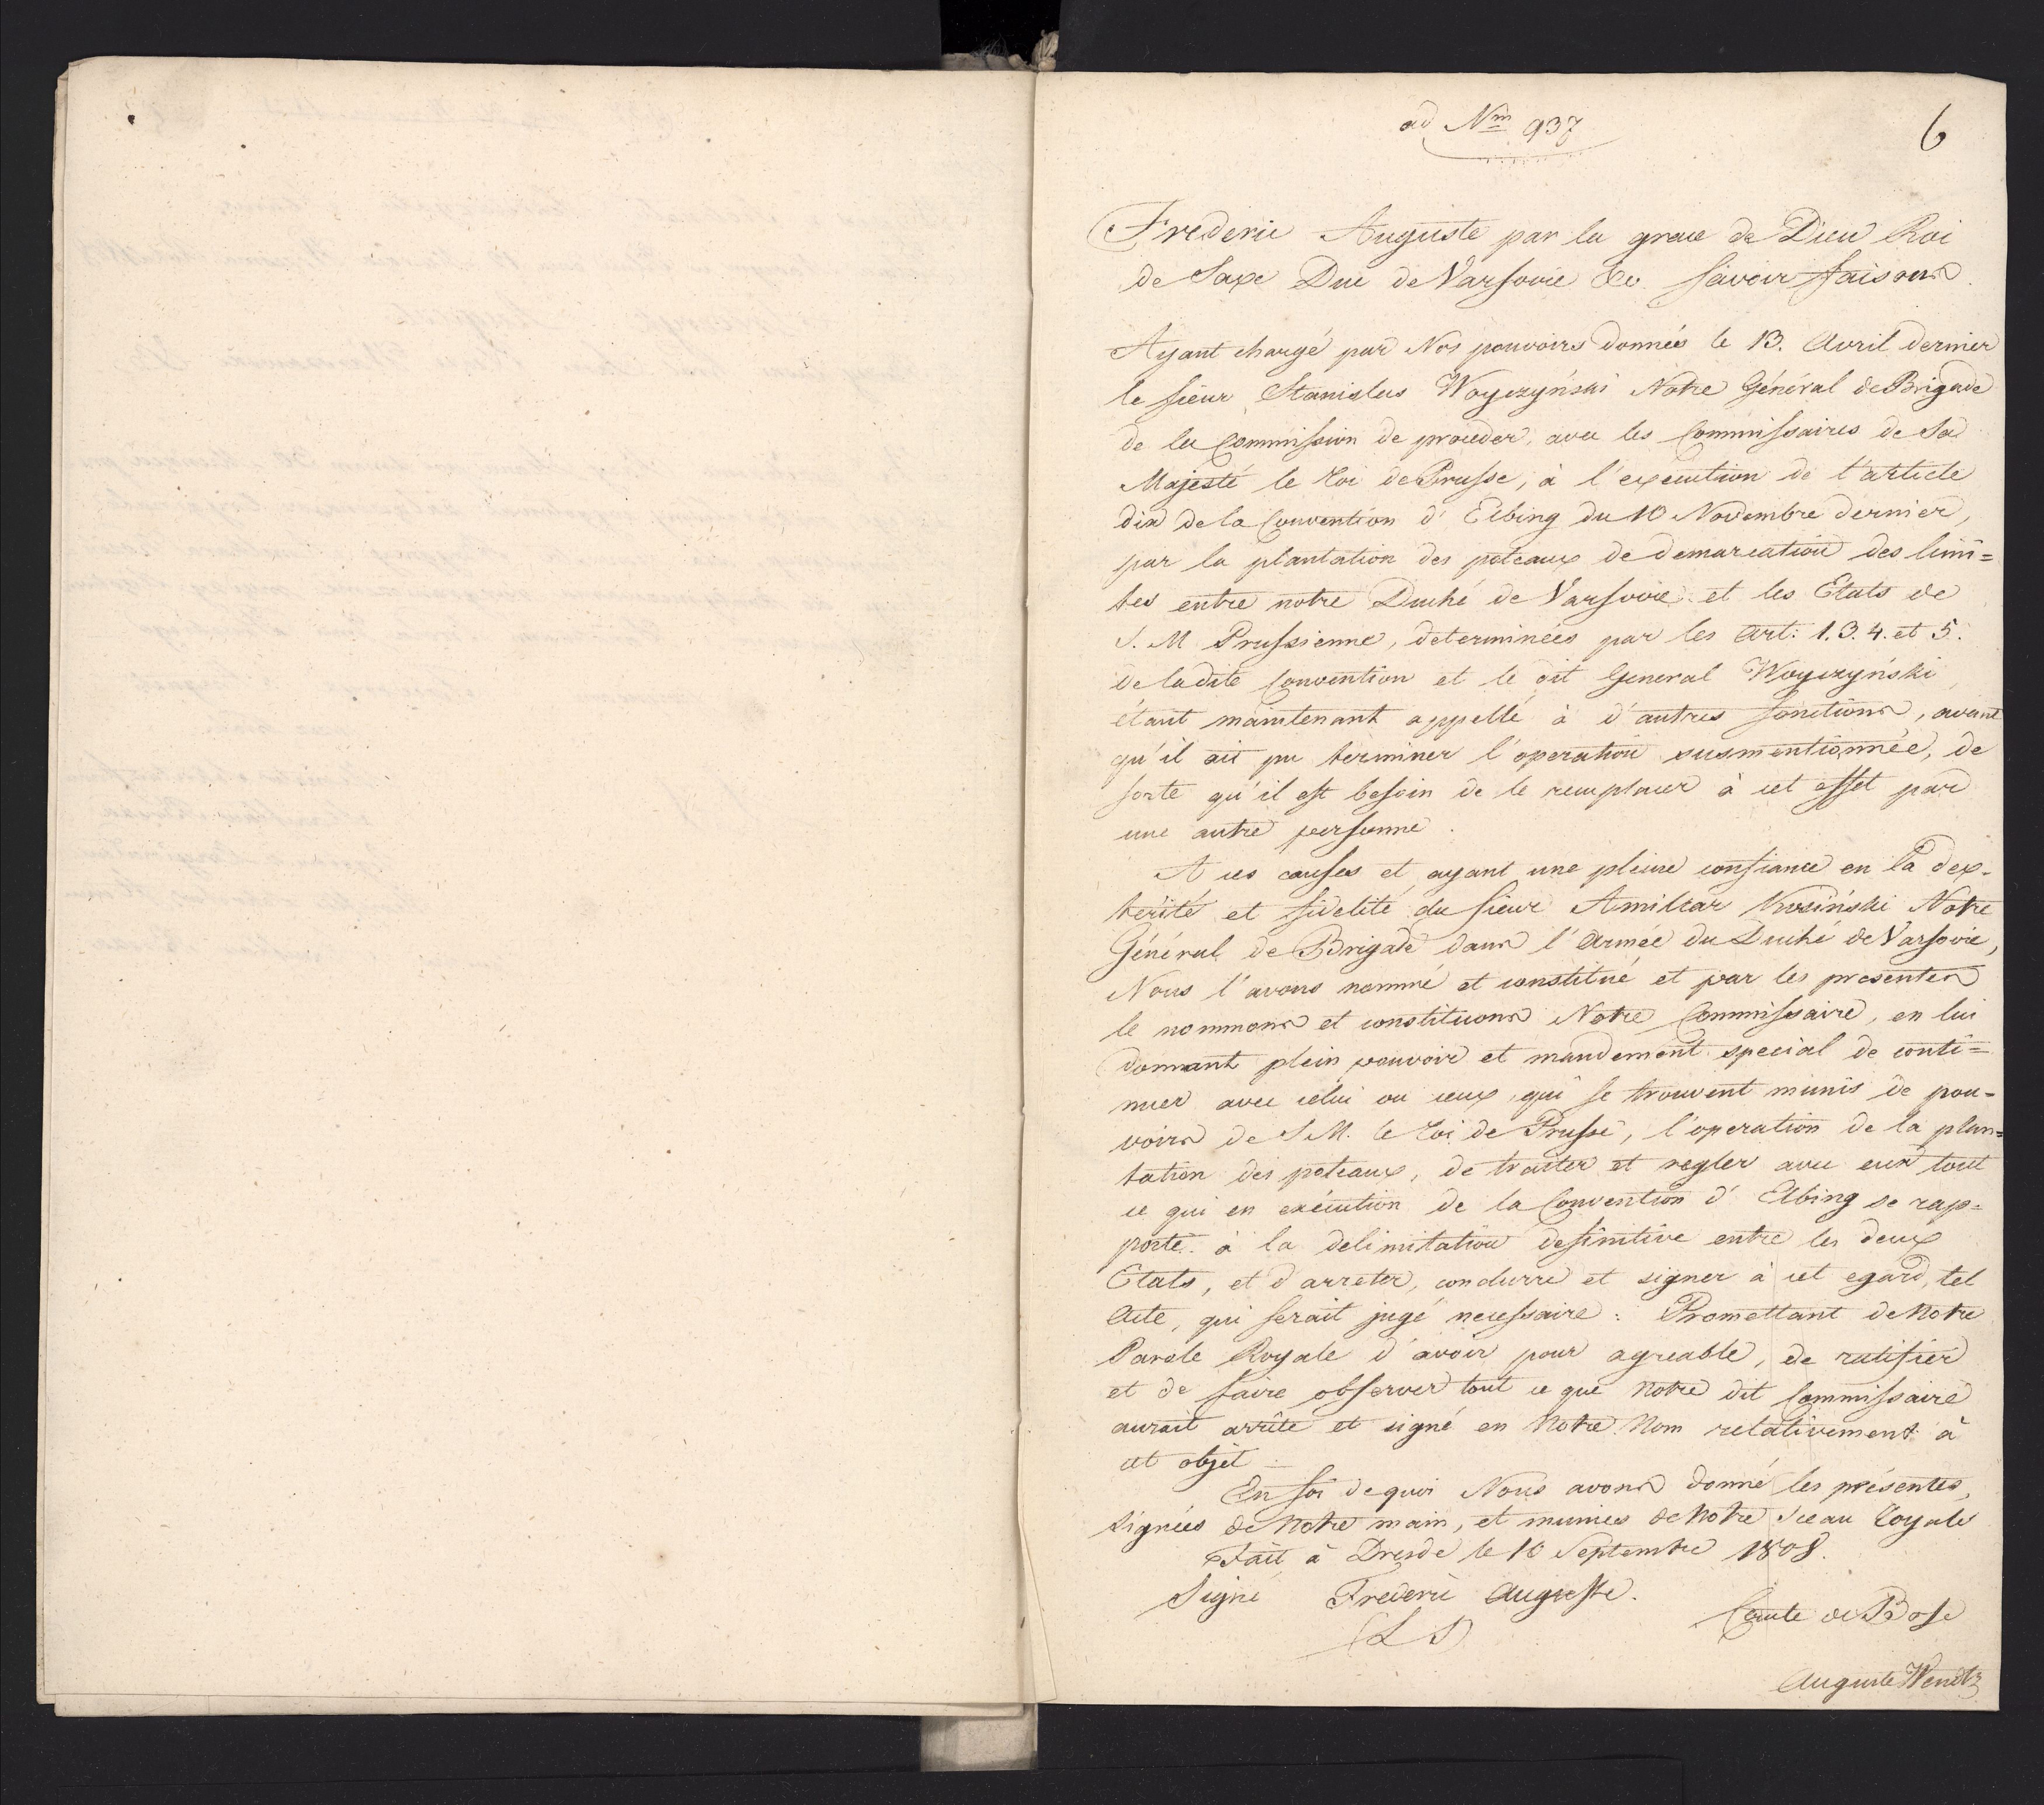 ad Nm 937
6
Frederic Auguste par la grace de Dieu Roi
de Saxe Duc de Varsovie &c. savoir faisons.
Ayant chargé par Nos pouvoirs donnés le 13. Avril dernier
le sieur Stanislas Woyczyński Notre Général de Brigade
de la Commission de proceder, avec les Commissaires de Sa
Majesté le Roi de Prusse, à l'execution de l'article
dix de la Convention d'Elbing du 10 Novembre dernier,
par la plantation des poteaux de demarcation des limi=
tes entre notre Duché de Varsovie et les Etats de
S. M. Prussienne, determinées par les Art: 1. 3. 4. et 5.
de ladite Convention et le dit General Woyczyński,
étant maintenant appellé à d'autres fonctions, avant
qu'il ait pu terminer l'operation susmentionnée, de
sorte qu'il est besoin de le remplacer à cet effet par
une autre personne.
A ces causes et ayant une pleine confiance en la dex-
terité et fidelité du sieur Amilcar Kosiński Notre
Général de Brigade dans l'Armée du Duché de Varsovie,
Nous l'avons nommé et constitué et par les presentes
le nommons et constituons Notre Commissaire, en lui
donnant plein pouvoir et mandement special de conti=
nuer avec celui ou ceux, qui se trouvent munis de pou-
voirs de S.M. le Roi de Prusse, l'operation de la plan=
tation des poteaux, de traiter et regler avec eux tout
ce qui en exécution de la Convention d'Elbing se rap=
porte à la delimitation definitive entre les deux
Etats, et d'arreter, conclurre et signer à cet egard, tel
Acte, qui serait jugé necessaire: Promettant de Notre
Parole Royale d'avoir pour agreable, de ratifier
et de faire observer tout ce que Notre dit Commissaire
aurait arrêté et signé en Notre Nom relativement à
cet objet.
En foi de quoi Nous avons donné les présentes,
signées de Notre main, et munies de Notre Sceau Royale
Fait à Dresde le 10 Septembre 1808.
Signé Frederic Auguste.
(L S)
Comte de Bose
Auguste Wendt